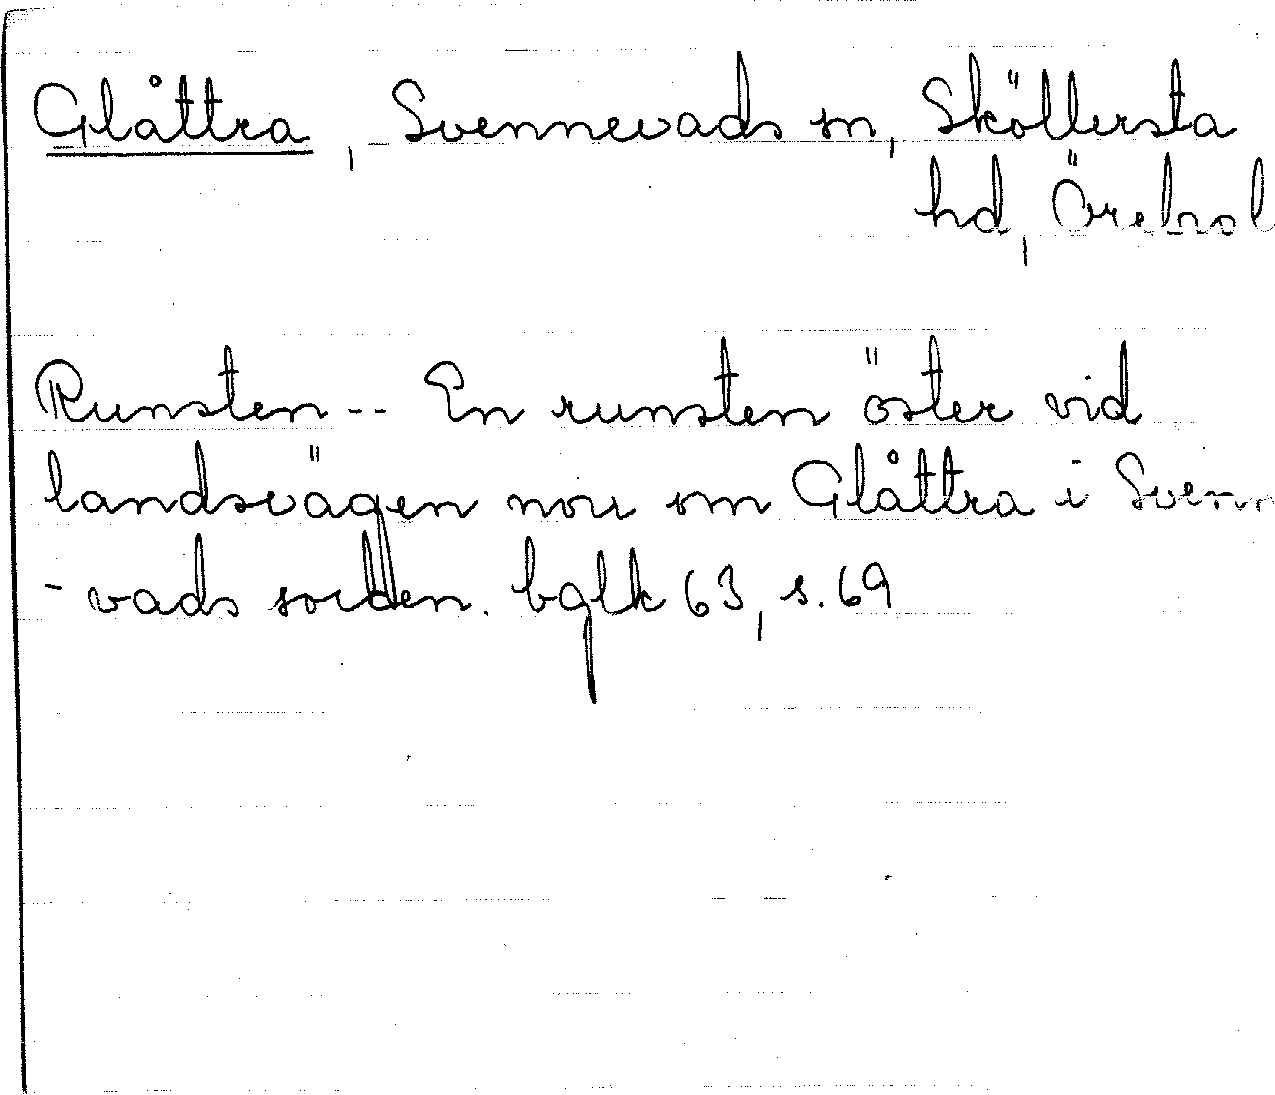 Glåttra, Svennevads sn, Sköllersta
hd, Örebro l
Runsten -- En runsten öster vid
landsvägen norr om Glåttra i Svenn
-vads socken. bglk 63, s. 69